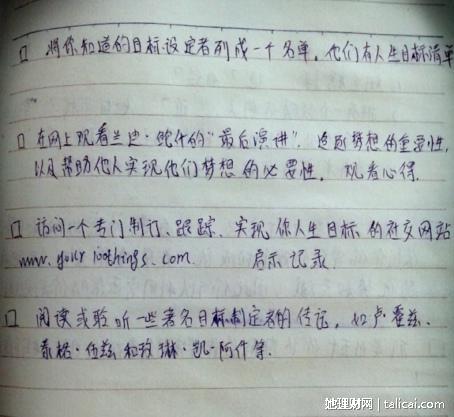 □ 将你知道的目标设定者列成一个名单，他们有人生目标清单
□ 在网上观看兰迪·鲍什的"最后演讲"。追逐梦想的重要性，
以及帮助他人实现他们梦想的必要性。观看心得.
□ 访问一个专门制订、跟踪、实现你人生目标的社交网站
www.your100things.com. 启示记录.
□ 阅读或聆听一些著名目标制定者的传记，如卢·霍兹.
泰格·伍兹和玫琳·凯·阿什等.
她理财网 | talicai.com